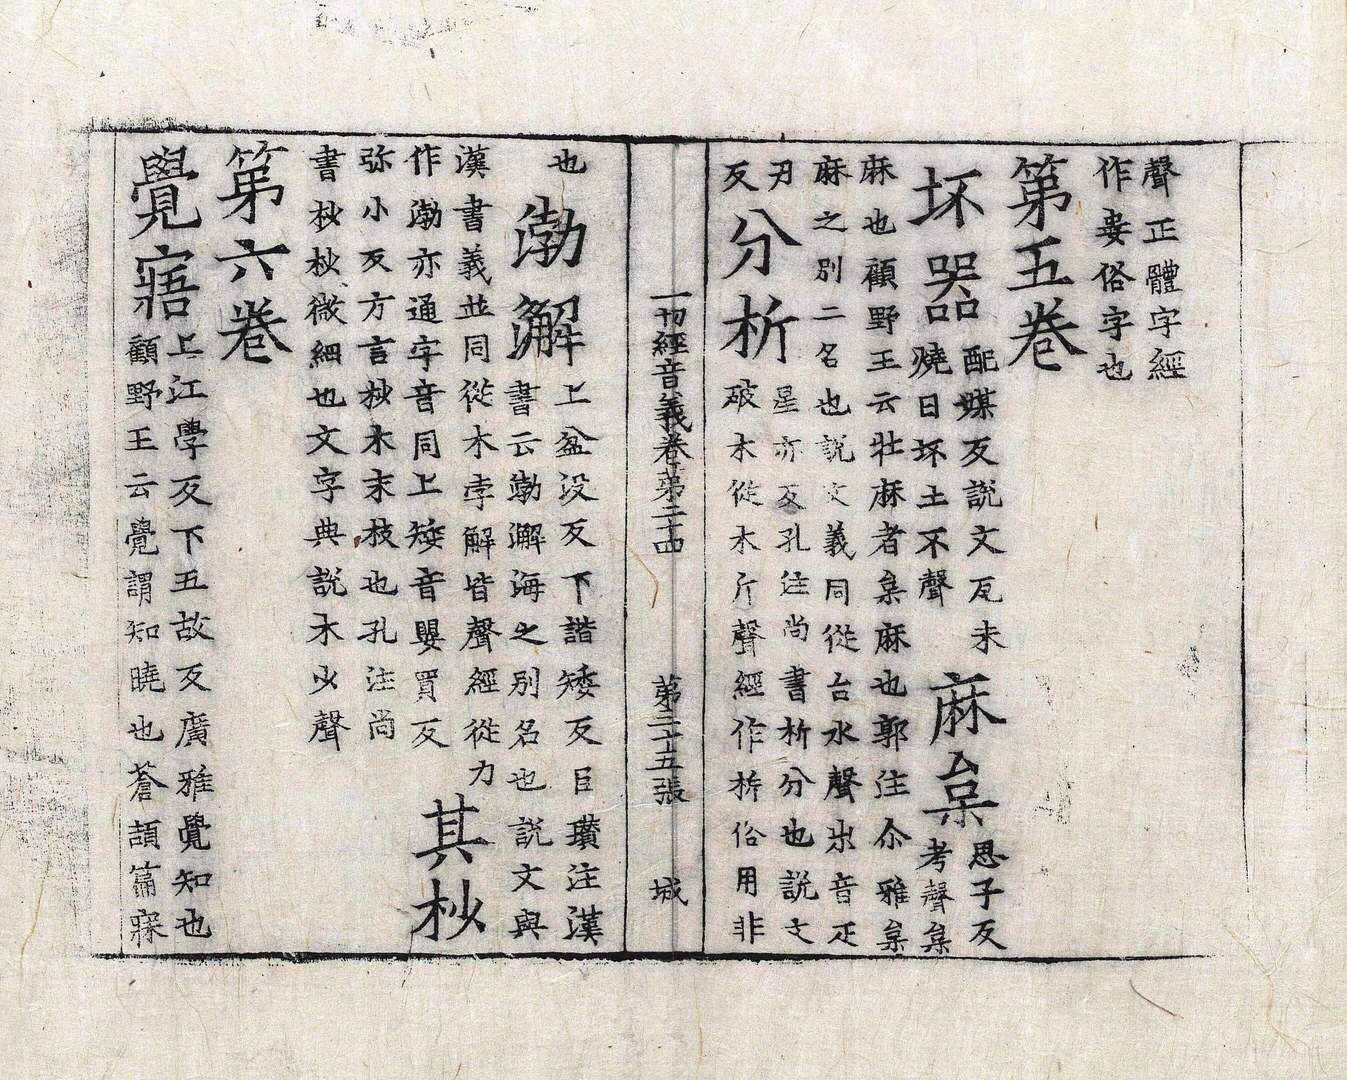 聲正體字經
作妾俗字也
第五卷
坏器配媒反說文瓦未
燒曰坏土不聲
麻枲思子反
考聲枲
麻也顧野王云牡麻者枲麻也郭注尒雅枲
麻之別二名也說文義同從台水聲出音疋
刃反
分析星亦反孔注尚書析分也說文
破木從木斤聲經作㭊俗用非
一切經音義卷第二十四 第二十五張 城
也
渤澥上盆沒反下諧矮反臣瓚注漢
書云渤澥海之別名也說文與
漢書義並同從水孛解皆聲經從力
作渤亦通字音同上矮音嬰買反
其杪
弥小反方言杪木末枝也孔注尚
書杪杪微細也文字典說木少聲
第六卷
覺寤上江學反下五故反廣雅覺知也
顧野王云覺謂知曉也蒼頡篇寐